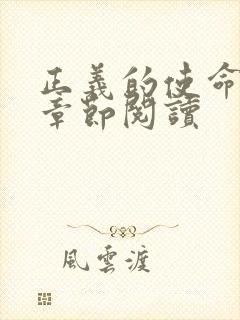 正義的使命
章節閱讀
風雲渡